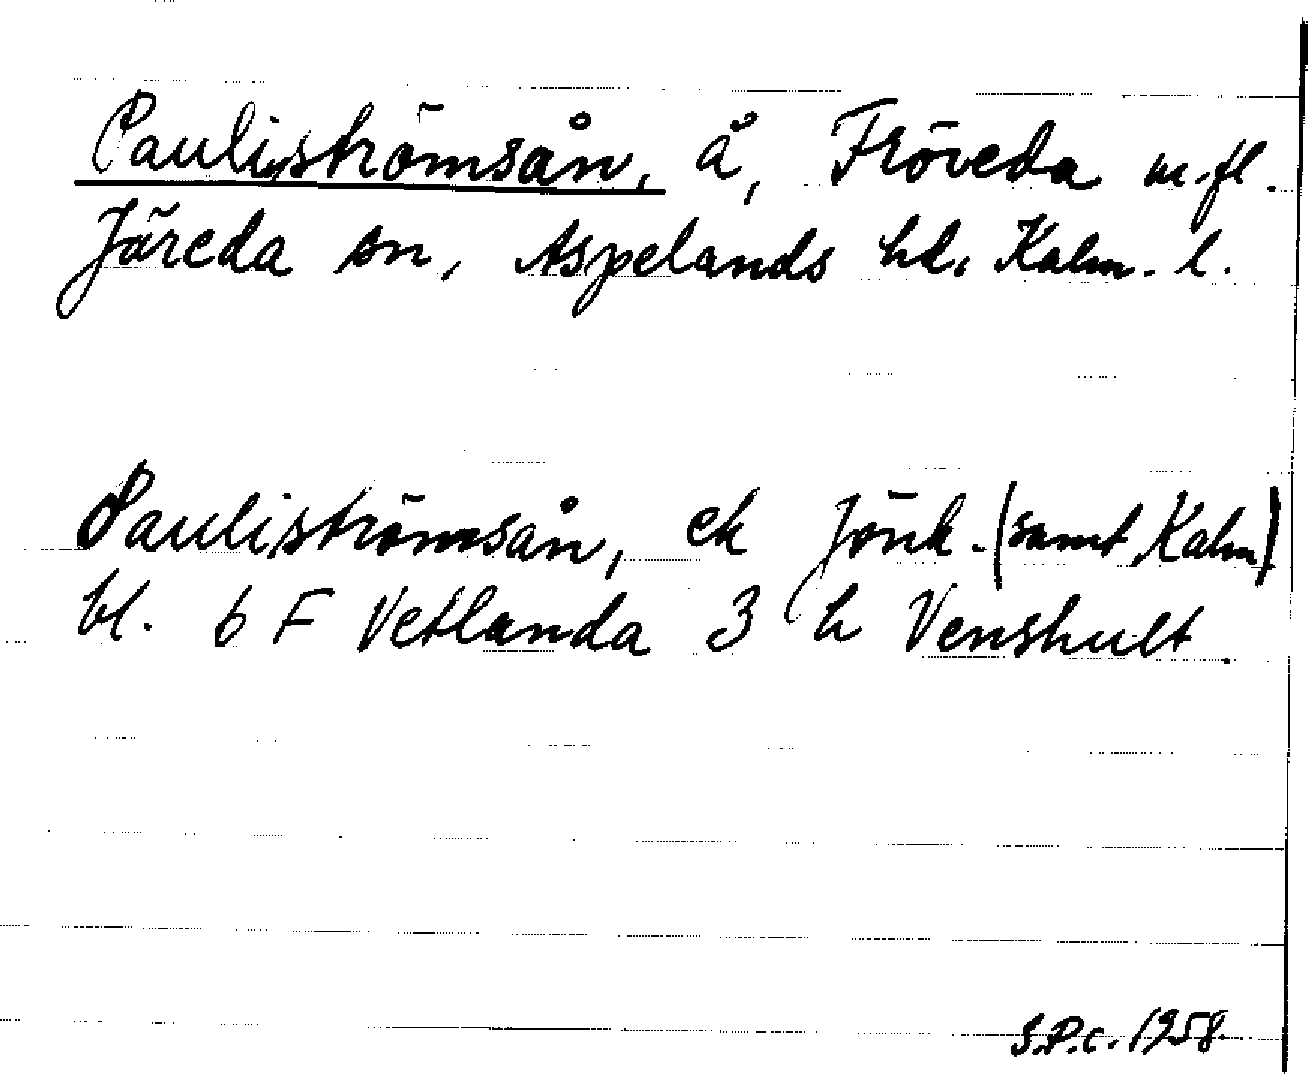 Pauliströmsån, å, Fröveda m.fl.
Järeda sn, Aspelands hd, Kalm. l.
Pauliströmsån, ek Jönk. (samt Kalm)
bl. 6 F Vetlanda 3 h Venshult
S.P.c. 1958.